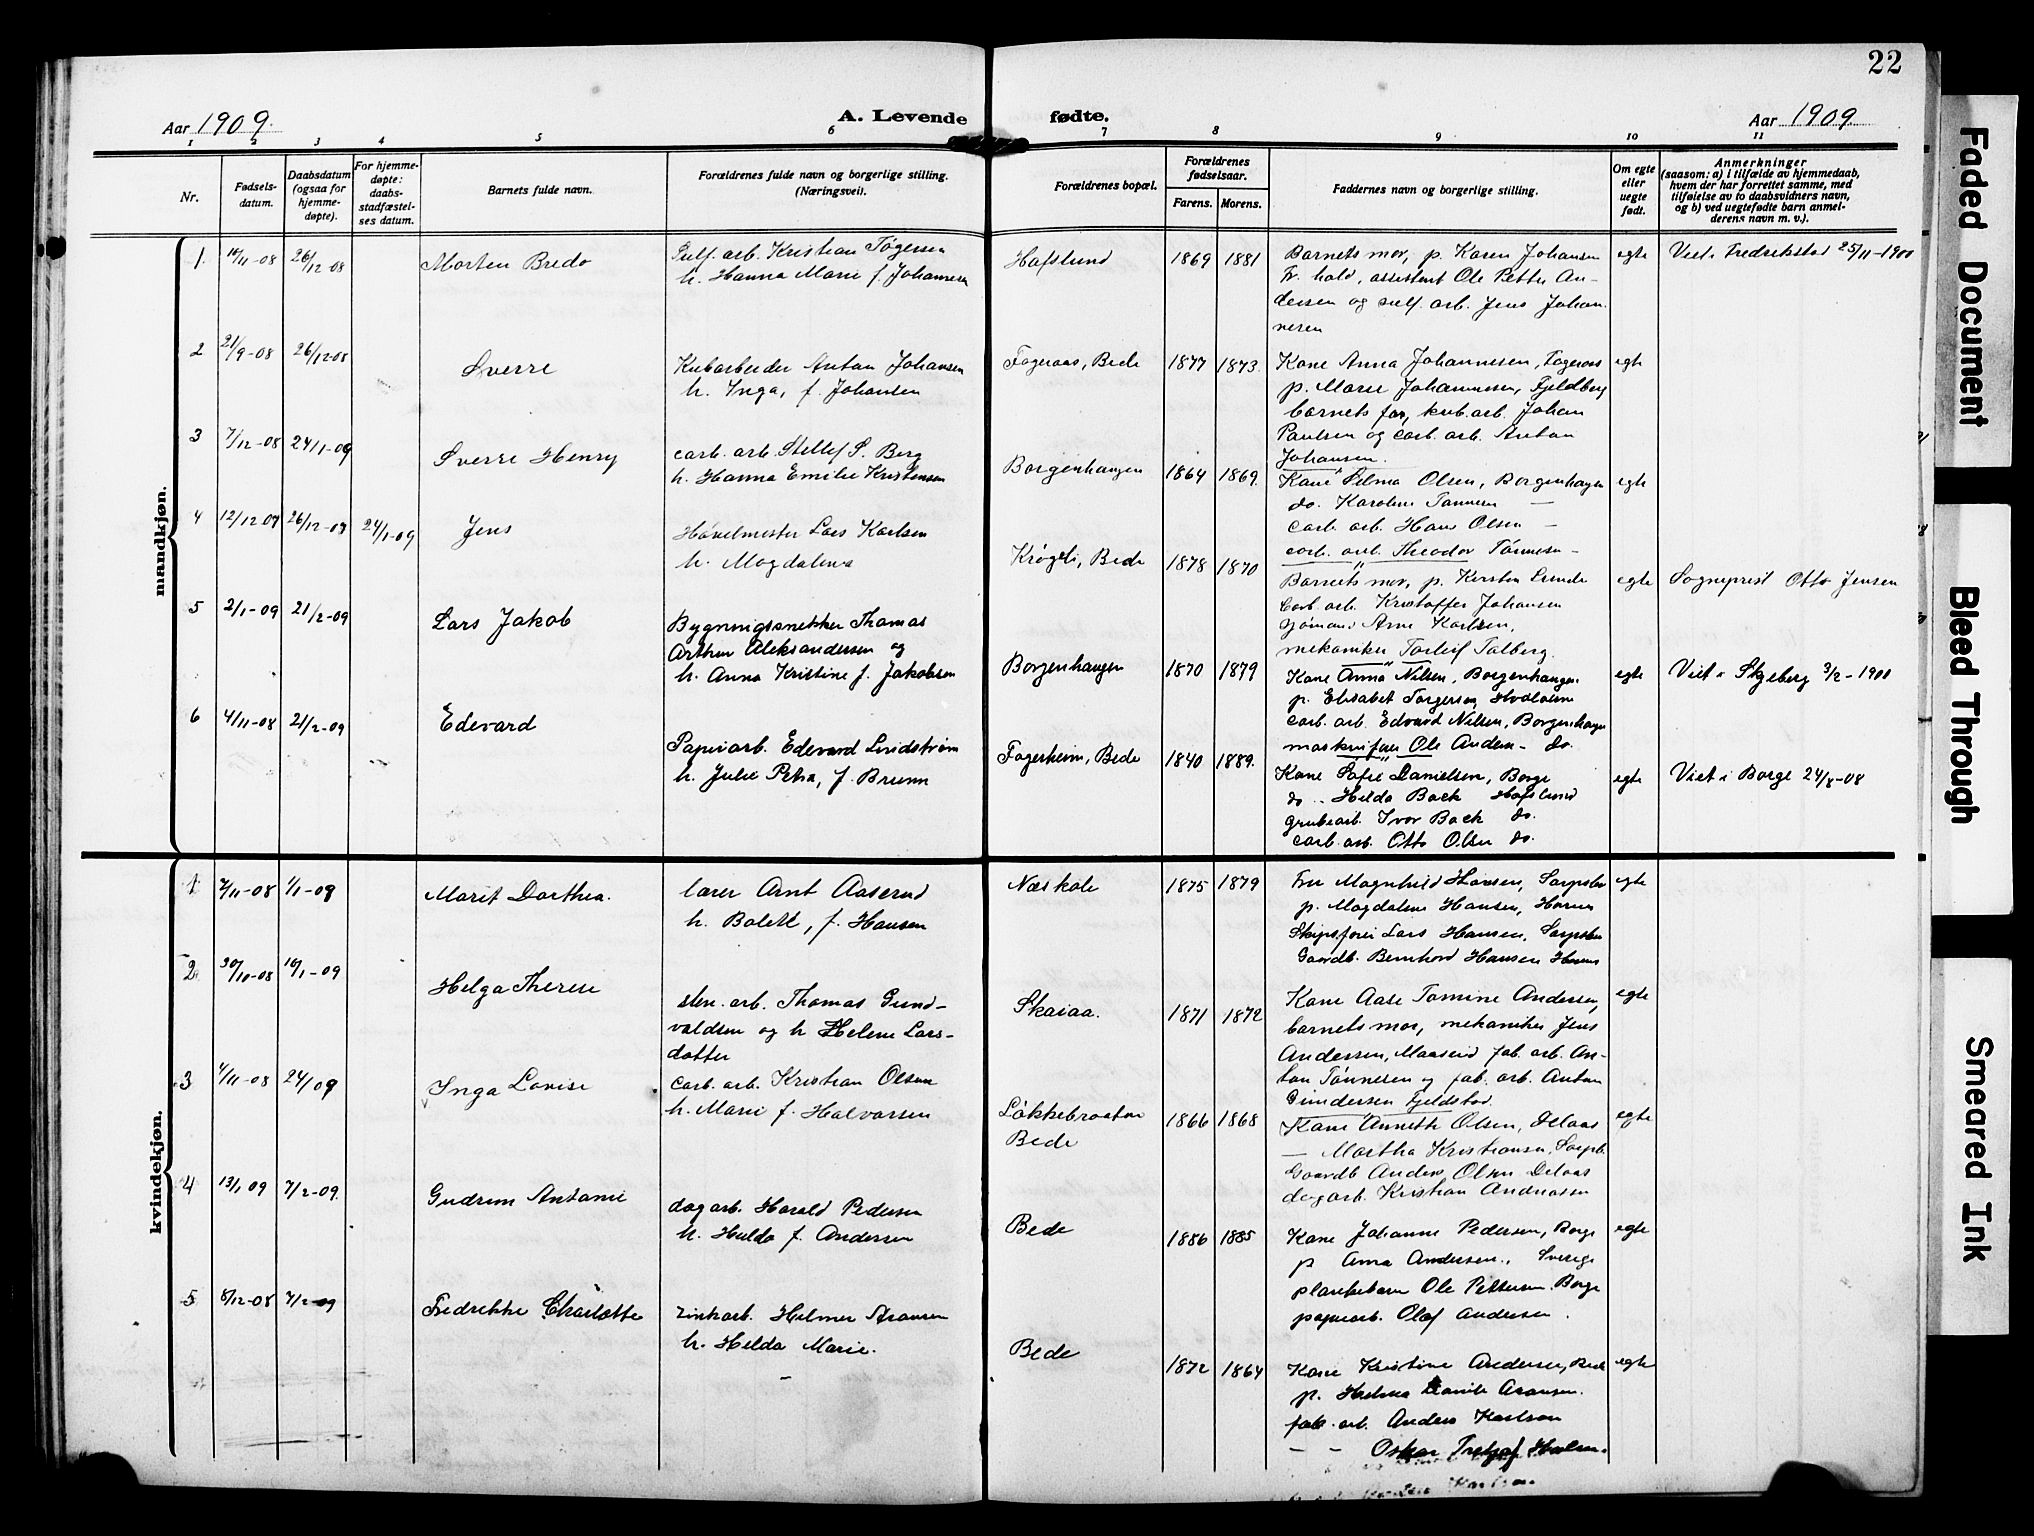 22
Aar 1909.
A. Levende fødte.
Aar 1909.
1 2 3 4 5 6 7 8 9 10 11
Nr.
Fødsels-
datum.
Daabsdatum
(ogsaa for
hjemme-
døpte).
For hjemme-
døpte:
daabs-
stadfæstel-
ses datum.
Barnets fulde navn.
Forældrenes fulde navn og borgerlige stilling.
(Næringsveil.
Forældrenes bopæl.
Forældrenes
fødselsaar.
Farens. Morens.
Faddernes navn og borgerlige stilling.
Om egte
eller
uegte
født.
Anmerkninger
(saasom: a) i tilfælde av hjemmedaab,
hvem der har forrettet samme, med
tilføielse av to daabsvidners navn,
og b) ved uegtefødte barn anmel-
derens navn m. v.).
mandkjøn.
1 10/11-08 26/12-08 Morten Bredo
Sulf. arb. Kristian Tøgersen
h. Hanna Marie f. Johansen
Hafslund 1869 1881
Barnets mor, p. Karen Johansen
Tr. hald, assistent Ole Petter An-
dersen og sulf. arb. Jens Johan-
nesen
egte Viet i Fredrikstad 25/11-1900
2 21/9-08 26/12-08 Sverre
Kubarbeider Anton Johansen
h. Inga, f. Johansen
Fageraas, Bede 1877 1873.
Kone Anna Johannesen, Fageraas
p. Marie Johannesen, Fjeldberg
barnets far, kub. arb. Johan
Paulsen og carb. arb. Anton
Johansen.
egte
3 7/12-08 24/1-09 Sverre Henry
carb. arb. Stellef S. Berg
h. Hanna Emilie Kristensen
Borgenhaugen 1864 1869.
Kone Selma Olsen, Borgenhaugen
do. Karoline Tønnesen —
carb. arb. Hans Olsen —
carb. arb. Theodor Tønnesen —
egte
4 12/12-07 26/12-07 24/1-09 Jens
Høvelmester Lars Karlsen
h. Magdalena
Krøgeli, Bede 1878 1870
Barnets mor, p. Kirsten Lunde
Carb. arb. Kristoffer Johansen
sjømand Arne Karlsen,
mekaniker Torleif Talberg.
egte Sogneprest Otto Jensen
5 2/1-09 21/2-09 Lars Jakob
Bygningssnekker Thomas
Arthur Aleksandersen og
h. Anna Kristine f. Jakobsen
Borgenhaugen 1870 1879
Kone Anna Nilsen, Borgenhaugen
p. Elisabet Torgersen,
carb. arb. Edvard Nilsen, Borgenhaugen
Ole Anders— do.
egte Viet i Skjeberg 3/2-1900
6 4/11-08 21/2-09 Edevard
Papirarb. Edevard Lindstrøm
h. Julie Petra, f. Brunn
Fagerheim, Bede 1840 1889.
Kone Sofie Danielsen, Borge
do .. Hilda Back Hafslund
grubearb. Ivor Back do.
carb. arb. Otto Olsen do.
egte Viet i Borge 24/8-08
kvindekjøn.
1 7/11-08 1/1-09 Marit Dorthea.
lærer Arnt Aaserud
h. Bolett, f. Hansen
Næskole 1875 1879
Fru Magnhild Hansen, Sarpsbor
p. Magdalene Hansen,
Skipsfører Lars Hansen, Sarpsbor
Gaardb. Bernhard Hansen
egte
2 30/10-08 10/1-09 Helga Therese
sten. arb. Thomas Gund-
valdsen og h Helene Lars-
datter
Skaiaa. 1871 1872
Kone Aase Tomine Andersen,
barnets mor, mekaniker Jens
Andersen, Maaseid fab. arb. An-
ton Tønnesen og fab. arb. Anton
Gundersen Fjeldstad.
egte
3 4/11-08 24/09 Inga Lovise
Carb. arb. Kristian Olsen
h. Marie f. Halvorsen
Løkkebraaten
Bede
1866 1868
Kone Annette Olsen, Delaas
— Martha Kristiansen, Sarpsb.
Gaardb Anders Olsen Delaas
dagarb. Kristian Andreassen
egte
4 13/1 09 7/2-09. Gudrun Antonie
dagarb. Harald Pedersen
h. Hulda f. Andersen
Bede 1886 1885
Kone Johanne Pedersen, Borge
p Anna Andersen., Sverige
plankebærer Ole Pettersen. Borge
papirarb. Olaf Andersen.
egte
5 8/12-08 7/2-09 Fredrikke Charlotte
zinkarb. Helmer Aronsen
h. Hilda Marie.
Bede 1872 1864
Kone Kristine Andersen, Bede
p. Helma Aronsen.
fab. arb. Anders Karlson
— — Oskar
egte
Karlson
Faded Document
Bleed Through
Smeared Ink